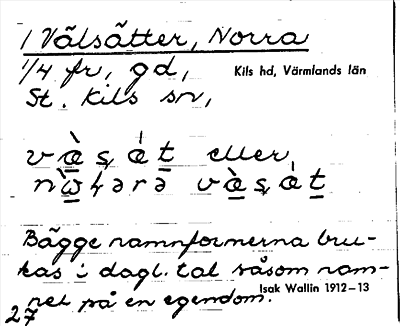 1 Välsätter, Norra
1/4 fr, gd, Kils hd, Värmlands län
St. Kils sn,
eller
Bägge namnformerna bru-
kas i dagl. tal såsom nam-
net på en egendom. Isak Wallin 1912–13
27